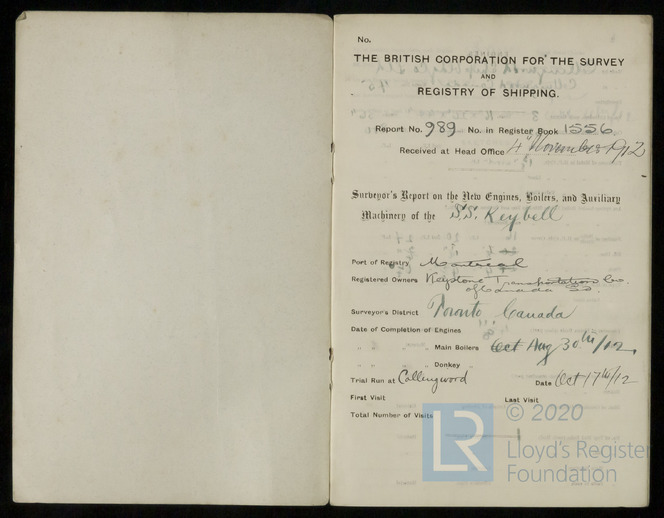 No.
THE BRITISH CORPORATION FOR THE SURVEY
AND
REGISTRY OF SHIPPING.
Report No. 989 No. in Register Book 1556
Received at Head Office 4th November 1912
Surveyor's Report on the New Engines, Boilers, and Auxiliary
Machinery of the S.S. Keybell
Port of Registry Montreal
Registered Owners Keystone Transportation Co.
of Canada Ld.
Surveyor's District Toronto Canada
Date of Completion of Engines
„ „ „ Main Boilers Oct Aug 30th/12.
„ „ „ Donkey „
Trial Run at Collingwood Date Oct 17th/12
First Visit Last Visit
Total Number of Visits
LR © 2020
Lloyd's Register
Foundation